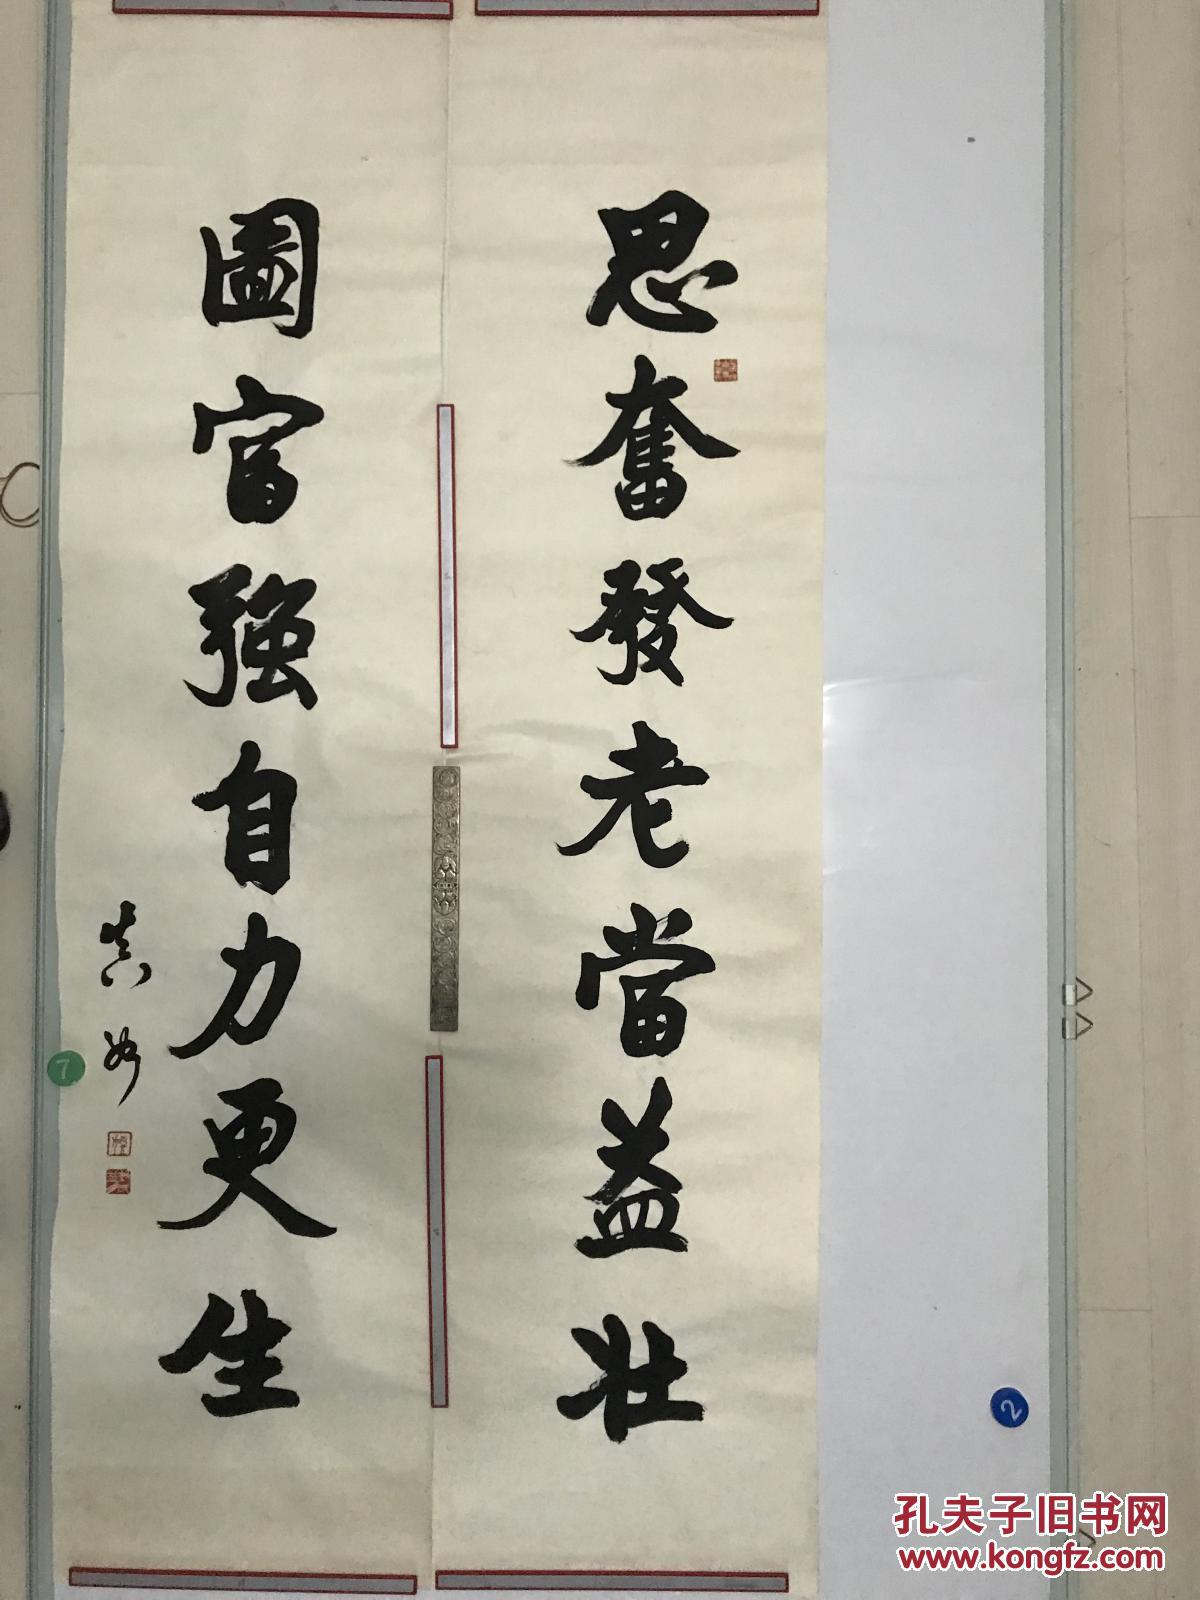 思奮發老當益壯
圖富強自力更生
7
2
孔夫子旧书网
www.kongfz.com